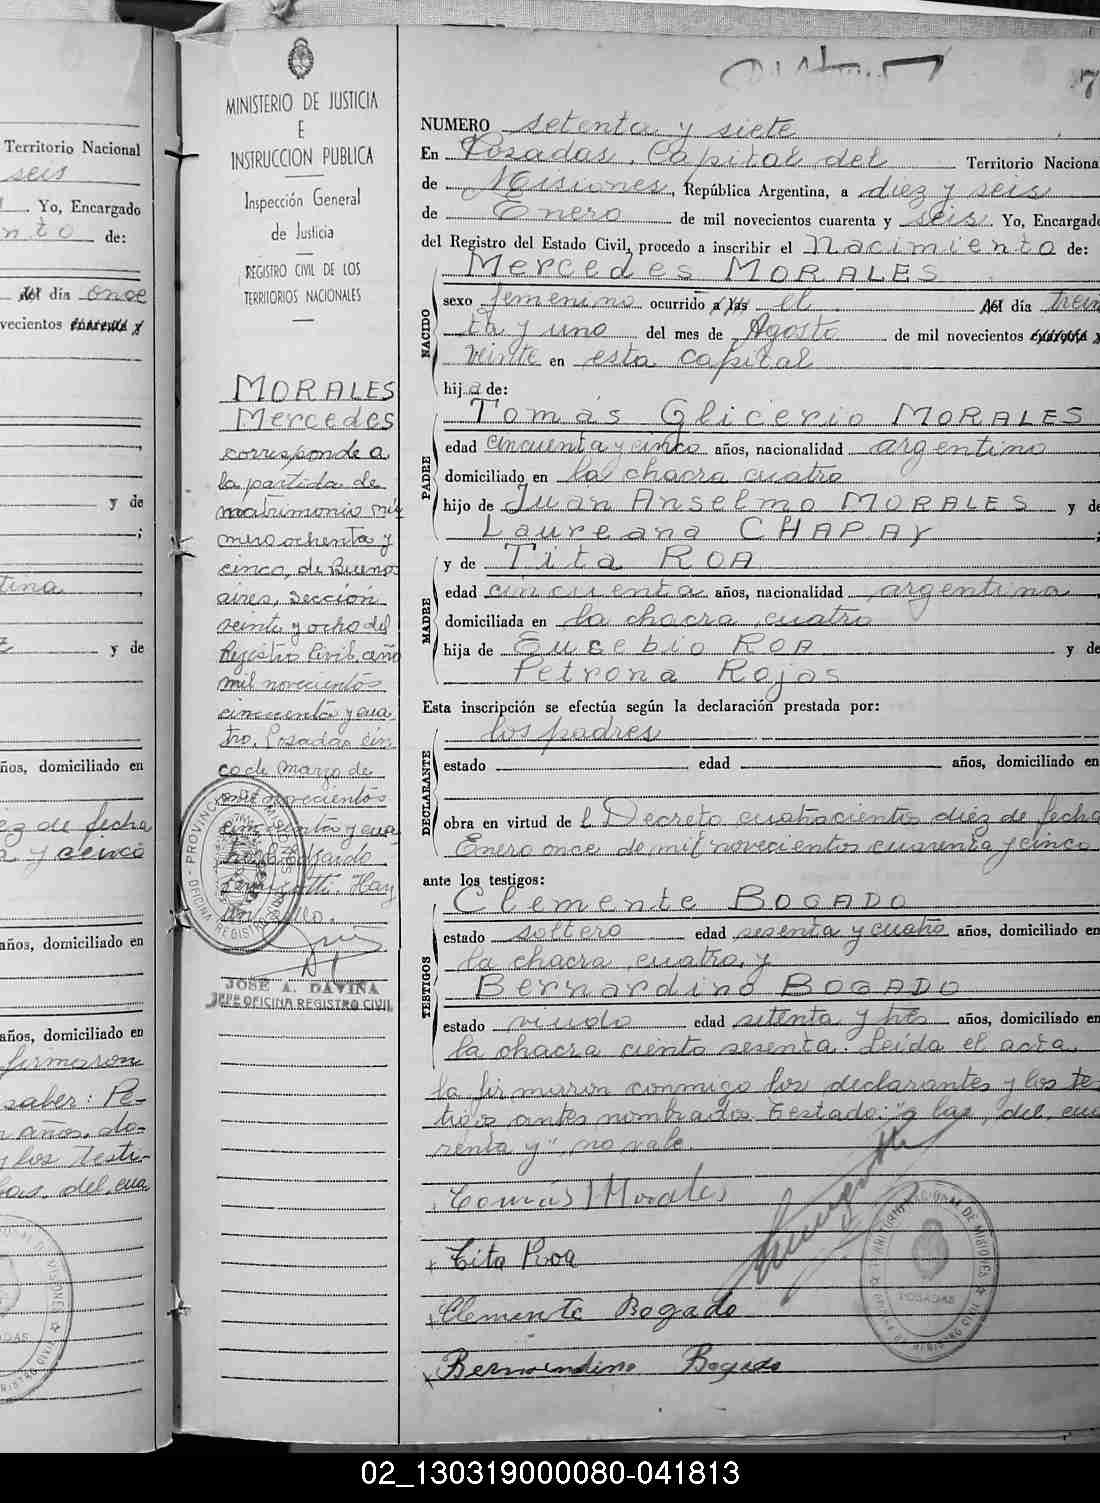 Territorio Nacional
seis
Yo, Encargado
nto de:
del día once
vecientos cuarenta y
y de
tina
y de
años, domiciliado en
ez de fecha
a y cinco
años, domiciliado en
años, domiciliado en
firmaron
saber: Pe-
años, do-
y los testi-
las, del, cua
MINISTERIO DE JUSTICIA
E
INSTRUCCION PUBLICA
Inspección General
de Justicia
REGISTRO CIVIL DE LOS
TERRITORIOS NACIONALES
MORALES
Mercedes
corresponde a
la partida de
matrimonio nú
mero ochenta y
cinco, de Buenos
aires, sección
veinte y ocho del
Registro Civil, año
mil novecientos
cincuenta y cua
tro. Posadas cin
co de Marzo de
mil novecientos
cincuenta y cua
Hay
un sello.
PROVINCIA DE MISIONES
OFICINA REGISTRO
JOSE A. DAVIÑA
JEFE OFICINA REGISTRO CIVIL
7
NUMERO setenta y siete
En Posadas, Capital del Territorio Naciona
de Misiones, República Argentina, a diez y seis
de Enero de mil novecientos cuarenta y seis. Yo, Encargado
del Registro del Estado Civil, procedo a inscribir el Nacimiento de:
NACIDO
Mercedes MORALES
sexo femenino ocurrido a las el del día trein
ta y uno del mes de Agosto de mil novecientos cuarenta y
veinte en esta capital
hija de:
PADRE
Tomás Glicerio MORALES
edad cincuenta y cinco años, nacionalidad argentino
domiciliado en la chacra cuatro
hijo de Juan Anselmo MORALES y de
Laureana CHAPAY ;
MADRE
y de Tita ROA
edad cincuenta años, nacionalidad argentina,
domiciliada en la chacra cuatro
hija de Eusebio ROA y de
Petrona Rojas
Esta inscripción se efectúa según la declaración prestada por:
DECLARANTE
los padres
estado edad años, domiciliado en
obra en virtud del Decreto cuatrocientos diez de fecha
Enero once de mil novecientos cuarenta y cinco
ante los testigos:
TESTIGOS
Clemente BOGADO
estado soltero edad sesenta y cuatro años, domiciliado en
la chacra cuatro, y
Bernardino BOGADO
estado viudo edad setenta y tres años, domiciliado en
la chacra ciento sesenta. Leída el acta,
la firmaron conmigo los declarantes y los tes
tigos antes nombrados. Testado: "a las, del, cua
renta y", no vale.
Tomás Morales
Tita Roa
Clemente Bogado
Bernardino Bogado
TERRITORIO NACIONAL DE MISIONES
POSADAS
02_130319000080-041813